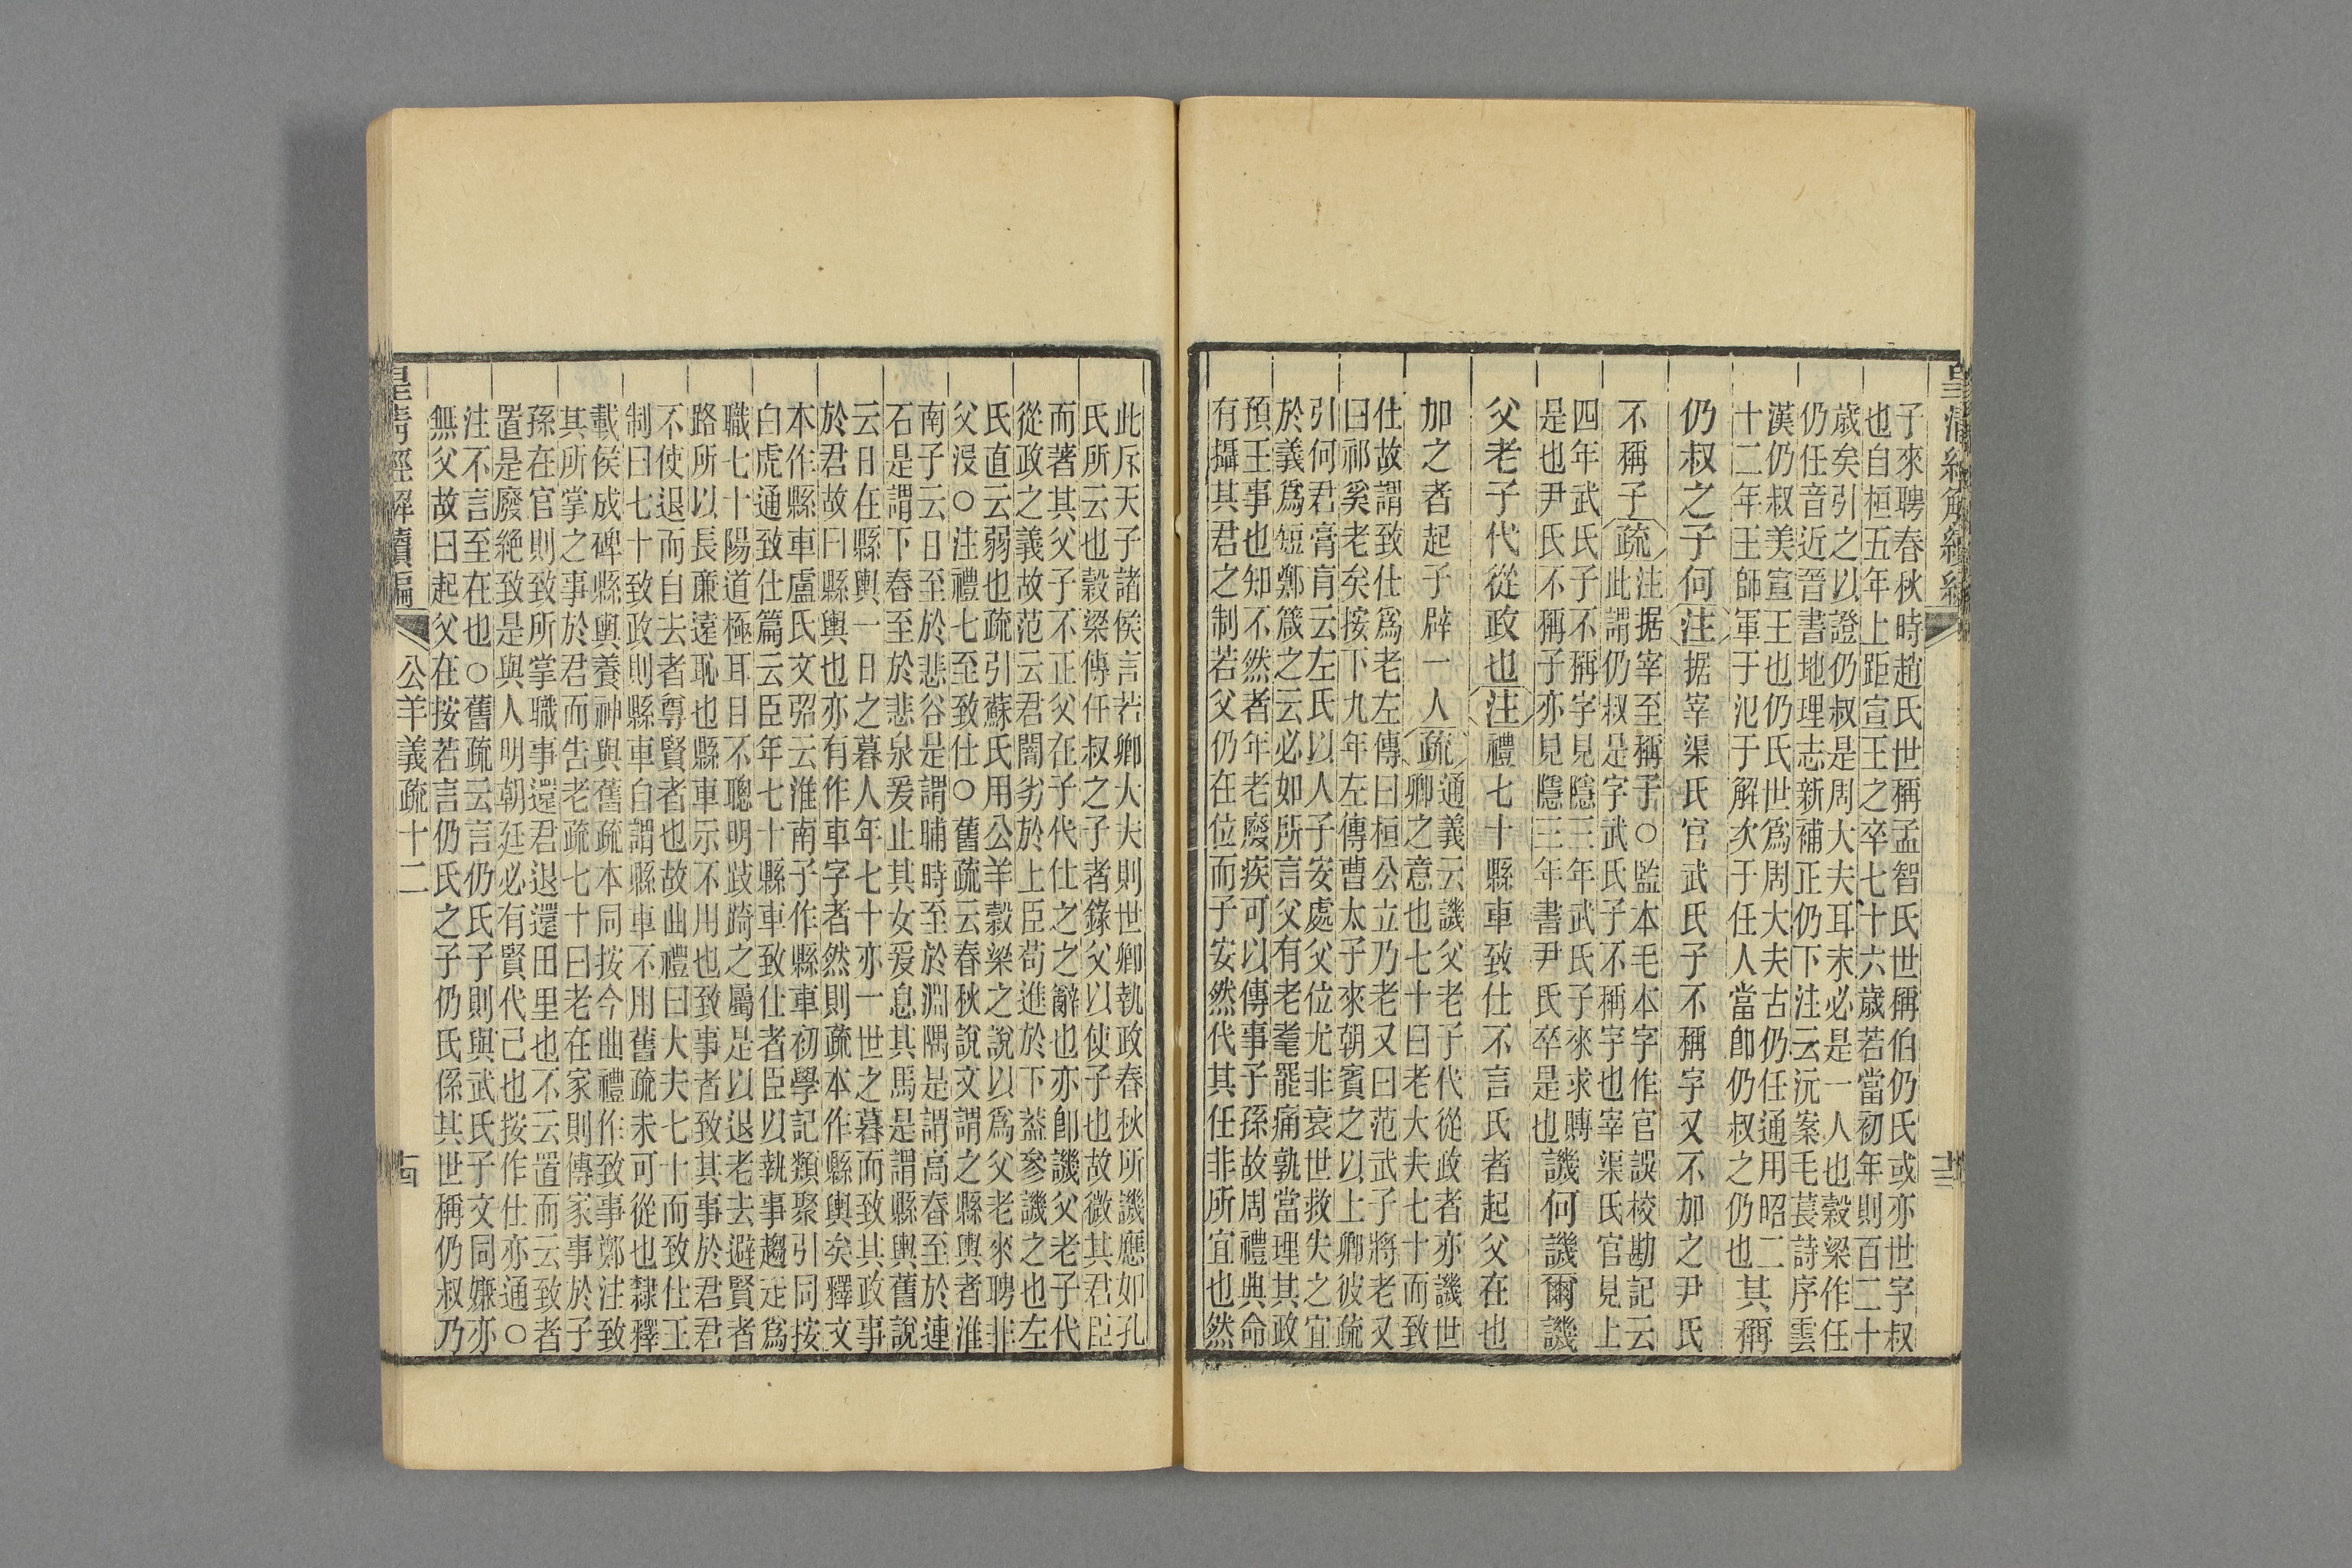 子來聘春秋時趙氏世稱孟智氏世稱伯仍氏或亦世字叔
也自桓五年上距宣王之卒七十六歲若當初年則百二十
歲矣引之以證仍叔是周大夫耳未必是一人也穀梁作任
仍任音近晉書地理志新補正仍下注云沅案毛萇詩序雲
漢仍叔美宣王也仍氏世爲周大夫古仍任通用昭二
十二年王師軍于氾于解次于任人當卽仍叔之仍也其稱
仍叔之子何注据宰渠氏官武氏子不稱字又不加之尹氏
不稱子疏注据宰至稱子○監本毛本字作官誤校勘記云
此謂仍叔是字武氏子不稱字也宰渠氏官見上
四年武氏子不稱字見隱三年武氏子來求賻
是也尹氏不稱子亦見隱三年書尹氏卒是也譏何譏爾譏
父老子代從政也注禮七十縣車致仕不言氏者起父在也
加之者起子辟一人疏通義云譏父老子代從政者亦譏世
卿之意也七十曰老大夫七十而致
仕故謂致仕爲老左傳曰桓公立乃老又曰范武子將老又
曰祁奚老矣按下九年左傳曹太子來朝賓之以上卿彼疏
引何君膏肓云左氏以人子安處父位尤非衰世救失之宜
於義爲短鄭箴之云必如所言父有老耄罷痛孰當理其政
預王事也知不然者年老廢疾可以傳事子孫故周禮典命
有攝其君之制若父仍在位而子安然代其任非所宜也然
此斥天子諸侯言若卿大夫則世卿執政春秋所譏應如孔
氏所云也穀梁傳任叔之子者錄父以使子也故微其君臣
而著其父子不正父在子代仕之之辭也亦卽譏父老子代
從政之義故范云君闇劣於上臣苟進於下蓋參譏之也左
氏直云弱也疏引蘇氏用公羊穀梁之說以爲父老來聘非
父沒○注禮七至致仕○舊疏云春秋說文謂之縣輿者淮
南子云日至於悲谷是謂晡時至於淵隅是謂高舂至於連
石是謂下舂至於悲泉爰止其女爰息其馬是謂縣輿舊說
云日在縣輿一日之暮人年七十亦一世之暮而致其政事
於君故曰縣輿也亦有作車字者然則疏本作縣輿矣釋文
本作縣車盧氏文弨云淮南子作縣車初學記類聚引同按
白虎通致仕篇云臣年七十縣車致仕者臣以執事趨走爲
職七十陽道極耳目不聰明跂踦之屬是以退老去避賢者
路所以長廉遠恥也縣車示不用也致事者致其事於君君
不使退而自去者尊賢者也故曲禮曰大夫七十而致仕王
制曰七十致政則縣車自謂縣車不用舊疏未可從也隸釋
載侯成碑縣輿養神與舊疏本同按今曲禮作致事鄭注致
其所掌之事於君而告老疏七十曰老在家則傳家事於子
孫在官則致所掌職事還君退還田里也不云置而云致者
置是廢絕致是與人明朝廷必有賢代己也按作仕亦通○
注不言至在也○舊疏云言仍氏子則與武氏子文同嫌亦
無父故曰起父在按若言仍氏之子仍氏係其世稱仍叔乃
公羊義疏十二